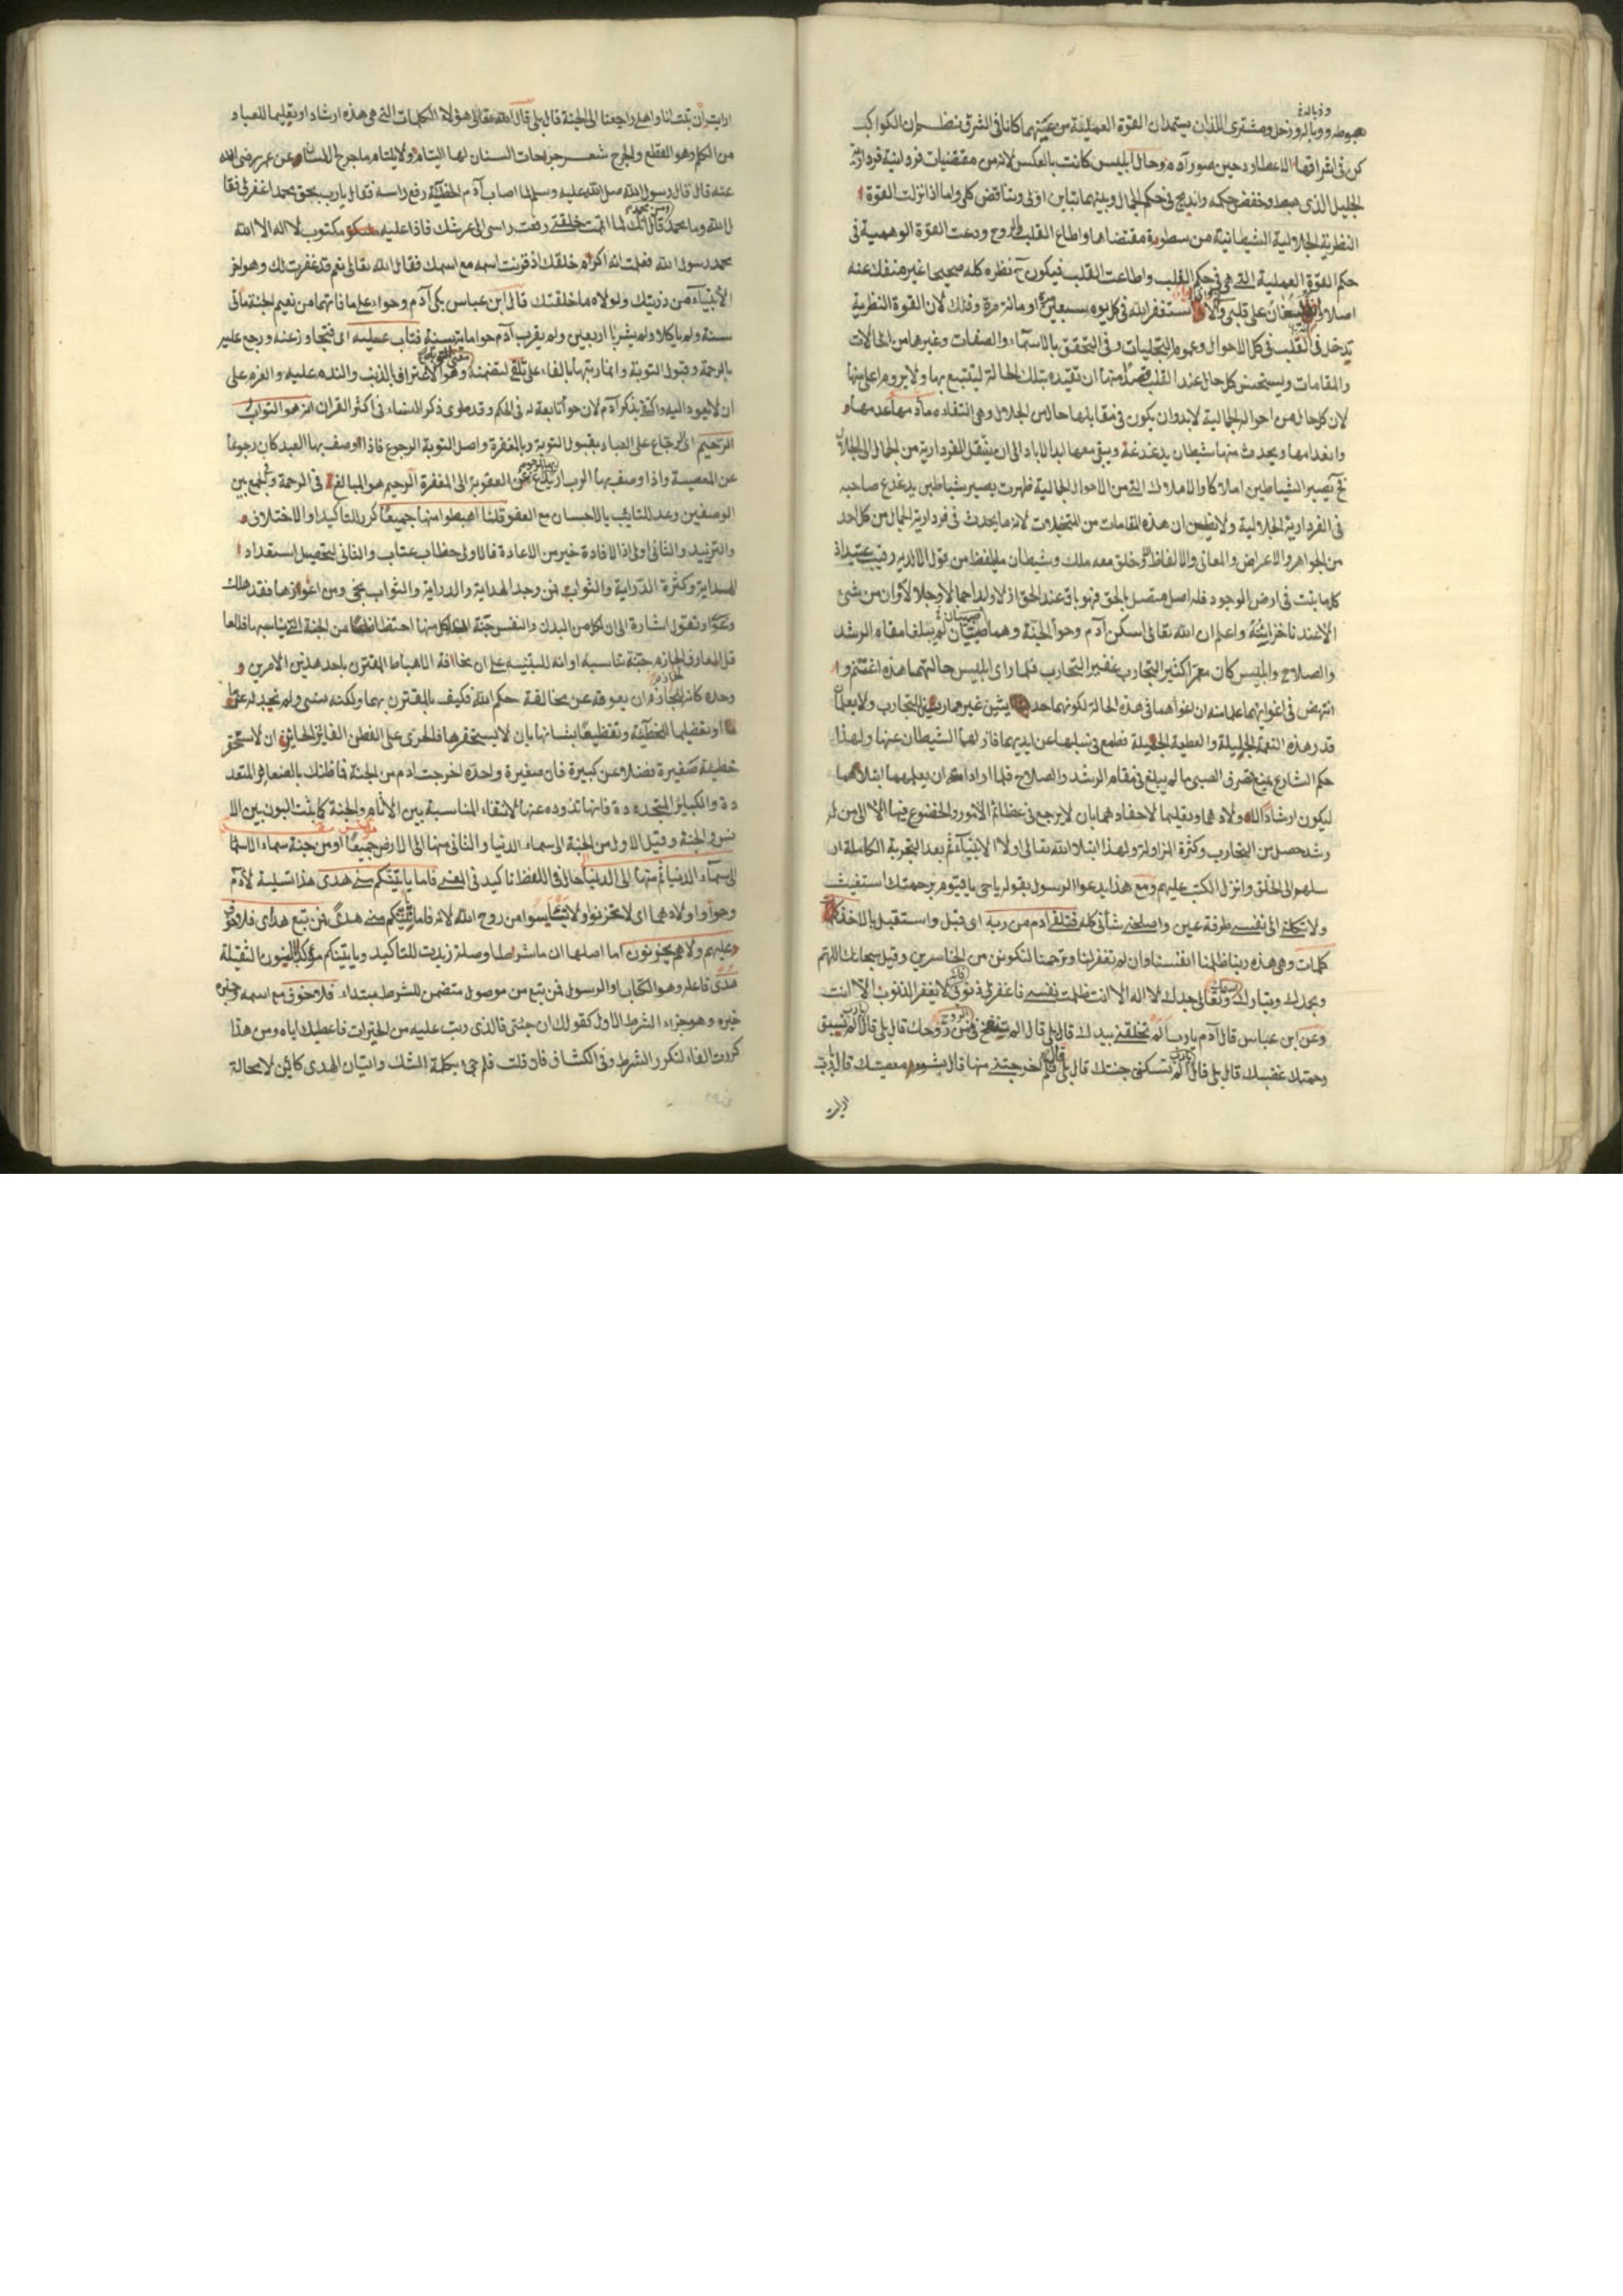 وفى باله فى
هبوطه ووباله وزحل ومشترى اللذان يستمدان القوة العملية من عينهما كانا فى الشرق نظر ان الكواكب
كن فى اشراقها الا عطارد حين صور آدم وحال ابليس كانت بالعكس لانه من مقتضيات فردانية
الجليل الذى هبط وخفض حكمه واندرج فى حكم الجمال وبينهما تباين اولى وتناقض كلى واما اذا نزلت القوة
النظرية الجلالية الشيطانية من سطوة مقتضاها واطاع القلب الروح ودعت القوة الوهمية فى
حكم القوة العملية التى هى فى حكم القلب واطاعت القلب فيكون ح نظره كله صحيحا غير منفك عنه
اصلا ليغان على قلبى وانى لاستغفر الله فى كل يوم سبعين او مائة مرة وذلك لان القوة النظرية
تدخل فى القلب فى كل الاحوال وعموم التجليات وفى التحقق بالاسماء والصفات وغيرها من الحالات
والمقامات ويستحسن كل حال عند القلب قصدا منها ان تقيده بتلك الحالة ليتتبع بها ولا يروم اعلى منها
لان كل حال من احواله الجمالية لابد وان يكون فى مقابلها حال من الجلال وهى انتفاء
وانعدامها ويحدث منها شيطان يدغدغه ويبقى معها ابد الاباد الى ان ينتقل الفردارية من الجمال الى الجلال
فح تصير الشياطين املاكا والاملاك التى من الاحوال الجمالية ظهرت يصير شياطين يدغدغ صاحبه
فى الفردارية الجلالية ولا يظن ان هذه المقامات من التخيلات لانه ما يحدث فى فردارية الجمال من كل احد
من الجواهر والاعراض والمعانى والالفاظ وخلق معه ملك وشيطان ما يلفظ من قول الا لديه رقيب عتيد اذ
كل ما ينبت فى ارض الوجود فله اصل متصل بالحق فهو باق عند الحق ازلا وابدا جمالا وجلالا وان من شئ
الا عندنا خزائنه واعلم ان الله تعالى اسكن آدم وحوا الجنة وهما صبيان لم يبلغا مقام الرشد
والصلاح وابليس كان معمرا كثير التجارب غفير التجارب فلما راى ابليس حالتهما هذه اغتنم وا
انتهض فى اغوائهما علما منه ان اغواهما فى هذه الحالة لكونهما حديثين غير ممارسين التجارب ولا يعلمان
قدر هذه النعمة الجليلة والعطية الجليلة فطمع فى سلبها عن ايديهما فازلهما الشيطان عنها ولهذا
حكم الشارع بمنع تصرف الصبى ما لم يبلغ فى مقام الرشد والصلاح فلما اراد الله ان يعلمهما ابتلاهما
ليكون ارشادا لاولادهما وتعليما لاحفادهما بان لا يرجع فى عظائم الامور والخضوع فيها الا الى من له
رشد حصل من التجارب وكثرة المزاولة ولهذا ابتلا الله تعالى اولا الانبياء ثم بعد التجربة الكاملة ار
سلهم الى الخلق وانزل الكتب عليهم ومع هذا يدعوا الرسول بقوله يا حى يا قيوم برحمتك استغيث
ولا تكلنى الى نفسى طرفة عين واصلح لى شأنى كله فتلقى ادم من ربه اى قبل واستقبل بالاخذ
كلمات وهى هذه ربنا ظلمنا انفسنا وان لم تغفر لنا وترحمنا لنكونن من الخاسرين وقيل سبحانك اللهم
وبحمدك وتبارك اسمك وتعالى جدك لا اله الا انت ظلمت نفسى فاغفر لى ذنوبى فانه لا يغفر الذنوب الا انت
وعن ابن عباس قال آدم يا رب الم تخلقنى بيدك قال بلى قال الم تنفخ فى الروح من روحك قال بلى قال يا رب الم تسبق
رحمتك غضبك قال بلى قال يا رب الم تسكنى جنتك قال بلى قال فلم اخرجتنى منها قال بشوم معصيتك قال يا رب
ارايت
ارايت ان تبت انا واهلى راجعنا الى الجنة قال بلى قال الله تعالى هؤلاء الكلمات التى هى هذه ارشادا وتعليما للعباد
من الكلم وهو القطع والجرح شعر جراحات السنان لها التيام ولا يلتام ما جرح اللسان وعن عمر رضى الله
عنه قال قال رسول الله صلى الله عليه وسلم لما اصاب آدم الخطيئة رفع راسه فقال يا رب بحق محمد اغفر لى فقا
ل الله وما محمد ومن محمد قال انك لما اتممت خلقتى رفعت راسى الى عرشك فاذا عليه مكتوب لا اله الا الله
محمد رسول الله فعلمت انه اكرم خلقك اذ قرنت اسمه مع اسمك فقال الله تعالى نعم قد غفرت لك وهو اخر
الانبياء من ذريتك ولولاه ما خلقتك قال ابن عباس بكى آدم وحواء على ما فاتهما من نعيم الجنة مائتى
سنة ولم ياكلا ولم يشربا اربعين ولم يقرب آدم حوا مائة سنة فتاب عليه اى فتجاوز عنه ورجع عليه
بالرحمة وقبول التوبة وانما رتبها بالفاء على تلقى لتضمنه معنى التوبة وهو الاعتراف بالذنب والندم عليه والعزم على
ان لا يعود اليه واكتفى بذكر آدم لان حوا تابعة له فى الحكم وقد طوى ذكر النساء فى اكثر القران انه هو التواب
الرحيم اى الرجاع على العباد بقبول التوبة وبالمغفرة واصل التوبة الرجوع فاذا وصف بها العبد كان رجوعا
عن المعصية واذا وصف بها الرب اريد بها الرجوع عن العقوبة الى المغفرة الرحيم هو المبالغ فى الرحمة وجمع بين
الوصفين وعد للتائب بالاحسان مع العفو قلنا اهبطوا منها جميعا كرر للتاكيد او الاختلاف
والتزييد والثانى اولى اذ الافادة خير من الاعادة فالاولى خطاب عتاب والثانى لتحصيل استعداد ا
لهداية وكثرة الدراية والثواب فمن وجد الهداية والدراية والثواب نجى ومن اعوزها فقد هلك
وغوى ونقول اشارة الى ان لكل من البدن والنفس جنة لكل منها احتظاظا من الجنة التى يناسبها فللعا
قل المعارف والحازم جنة تناسبه او انه للتنبيه على ان مخافة الاهباط المقترن باحد هذين الامرين و
وحده كانه للحازم ان يعوقه عن مخالفة حكم الله فكيف بالمقترن بهما ولكنه نسى ولم نجد له عزما
او تفضيلا للخطيئة وتفظيعا لشانها بان لا يستحقرها فالحرى على الفطن الفايز الحايز ان لا يستحقر
خطيئة صغيرة فضلا عن كبيرة فان صغيرة واحدة اخرجت ادم من الجنة فما ظنك بالصغاير المتعد
دة والكباير المتجددة فانها تذوده عنها لانتفاء المناسبة بين الآثام والجنة كما يثبت البون بين الا
نس والجنة وقيل الاول من الجنة الى سماء الدنيا والثانى منها الى الارض جميعا او من جنة سماء الاسما
الى سماء الدنيا ثم منها الى الدنيا حال فى اللفظ تاكيد فى المعنى فاما ياتينكم منى هدى هذا تسلية لآدم
وحوا واولادهما اى لا تحزنوا ولا تيأسوا من روح الله لانه فاما ياتينكم منى هدى فمن تبع هداى فلا خوف
عليهم ولا هم يحزنون اما اصلها ان ما شرط وصلة زيدت للتاكيد وياتينكم مؤكد بالنون الثقيلة
هدى فاعله وهو الكتاب او الرسول فمن تبع من موصول متضمن للشرط مبتداء فلا خوف مع اسمه وخبره
خبره وهو جزاء الشرط الاول كقولك ان جئتى فالذى وجب عليه من الخيرات فاعطيك اياه ومن هذا
كررت الفاء لتكرر الشرط وفى الكشاف فان قلت فلم جئ بكلمة الشك واتيان الهدى كائن لا محالة